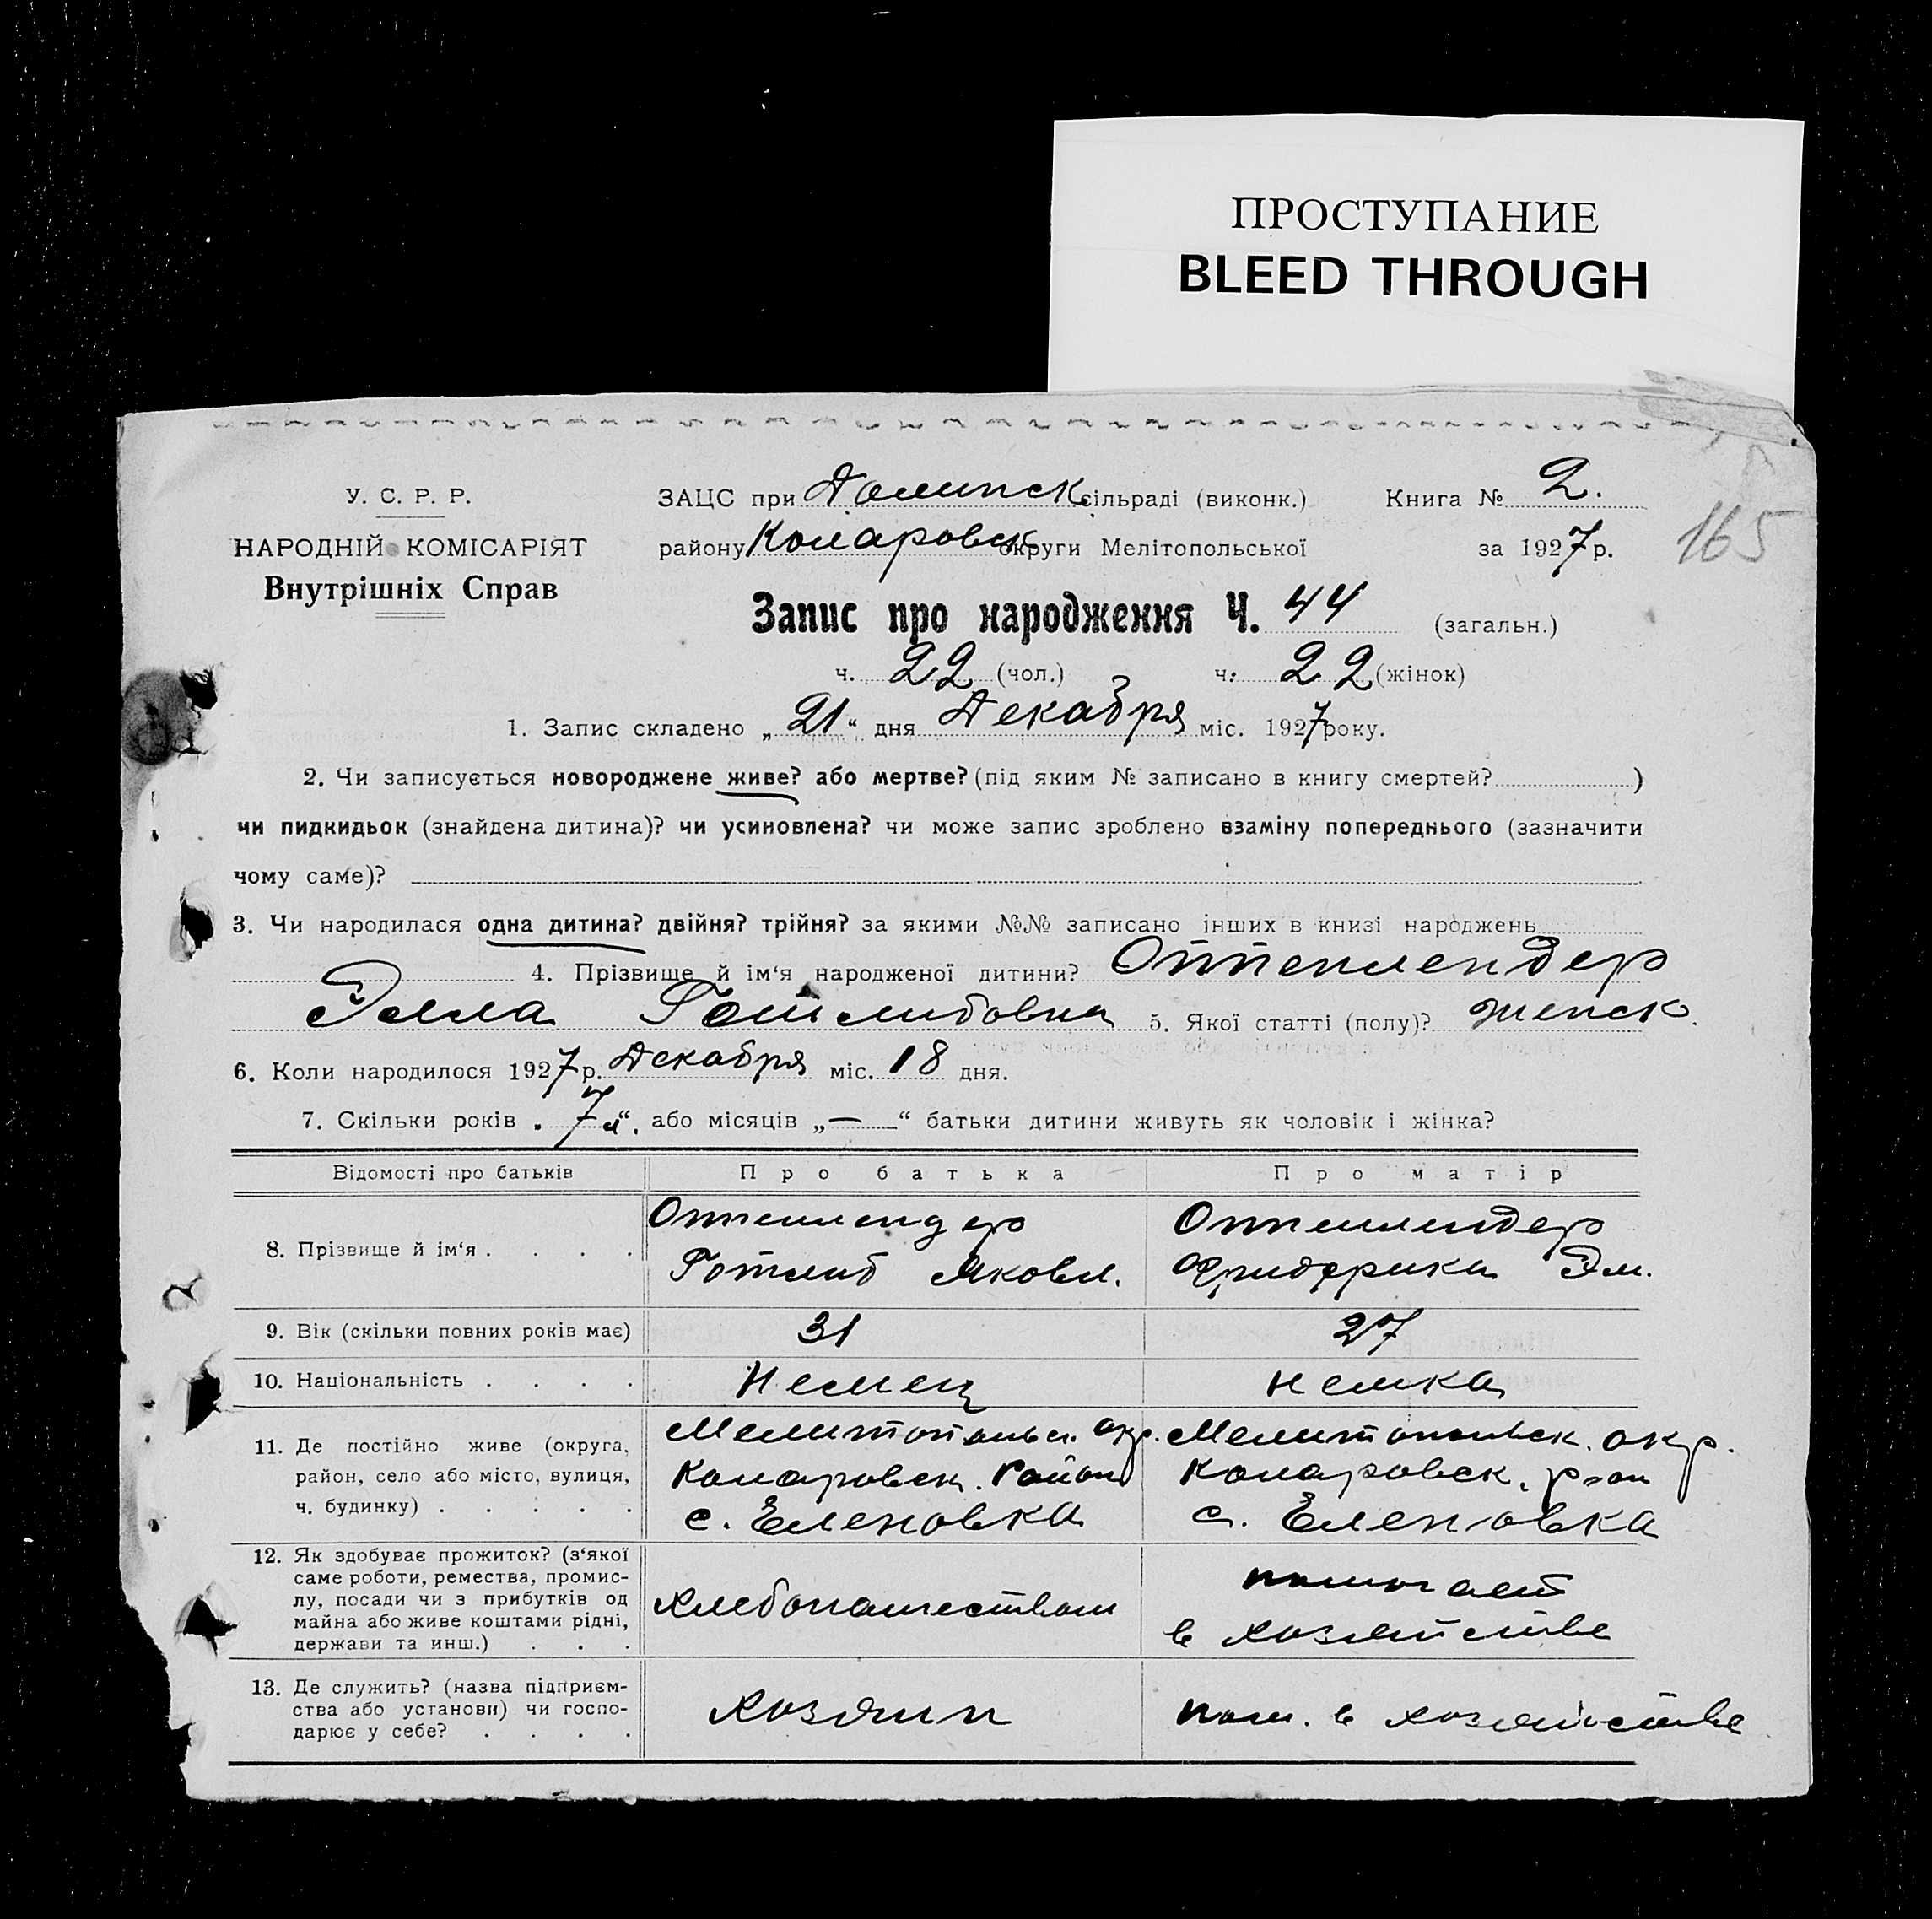 ПРОСТУПАНИЕ
BLEED THROUGH
У. С. Р. Р.
НАРОДНІЙ КОМІСАРІЯТ
Внутрішніх Справ
ЗАЦС при Долинск сільраді (виконк.) Книга № 2.
району Коларовск округи Мелітопольської за 1927 р.
165
Запис про народження Ч. 44 (загальн.)
ч. 22 (чол.) ч. 22 (жінок)
1. Запис складено „21“ дня Декабря міс. 1927 року.
2. Чи записується новороджене живе? або мертве? (під яким № записано в книгу смертей? )
чи пидкидьок (знайдена дитина)? чи усиновлена? чи може запис зроблено взаміну попереднього (зазначити
чому саме)?
3. Чи народилася одна дитина? двійня? трійня? за якими №№ записано інших в книзі народжень
4. Прізвище й ім‘я народженої дитини? Оппенлендер
Элла Готлибовна 5. Якої статті (полу)? женск.
6. Коли народилося 1927 р. Декабря міс. 18 дня.
7. Скільки років „7“, або місяців „—“ батьки дитини живуть як чоловік і жінка?
Відомості про батьків Про батька Про матір
8. Прізвище й ім‘я . . . . Оппенлендер Готлиб Яковл. Оппенлендер Фридрика Эм.
9. Вік (скільки повних років має) 31 27
10. Національність . . . . Немец немка
11. Де постійно живе (округа,
район, село або місто, вулиця,
ч. будинку) . . . . .
Мелитопольск. окр.
Коларовск. район
с. Еленовка
Мелитопольск. окр.
Коларовск. р-он
с. Еленовка
12. Як здобуває прожиток? (з‘якої
саме роботи, ремества, промис-
лу, посади чи з прибутків од
майна або живе коштами рідні,
держави та инш.) . . .
хлебопашеством
помогает
в хозяйстве
13. Де служить? (назва підприєм-
ства або установи) чи госпо-
дарює у себе? . . . .
хозяин
пом. в хозяйстве